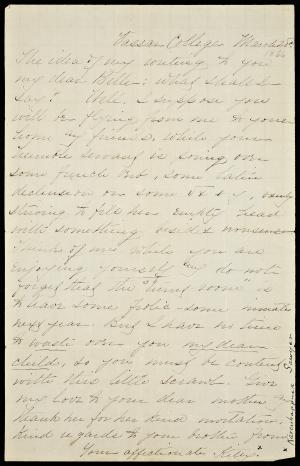 Vassar College March
The idea of my writing to you
my dear Belle; what shall I
say? Well, I suppose you
will be flying from me to your
home & friends, while your
humble servant is going over
some French and, some Latin
declension or some
striving to fill her empty head
with something besides nonsense
Think of me while you are
enjoying yourself & do not
forget that the "dining room" is
to have some frolic-some inmates
next year. But I have no time
to waste over you my dear
child, so you must be content
with this little scrawl. Give
my love to your dear mother, &
thank her for her kind invitation.
Kind regards to your brother, from
Your affectionate Kelly*
* Sawyer